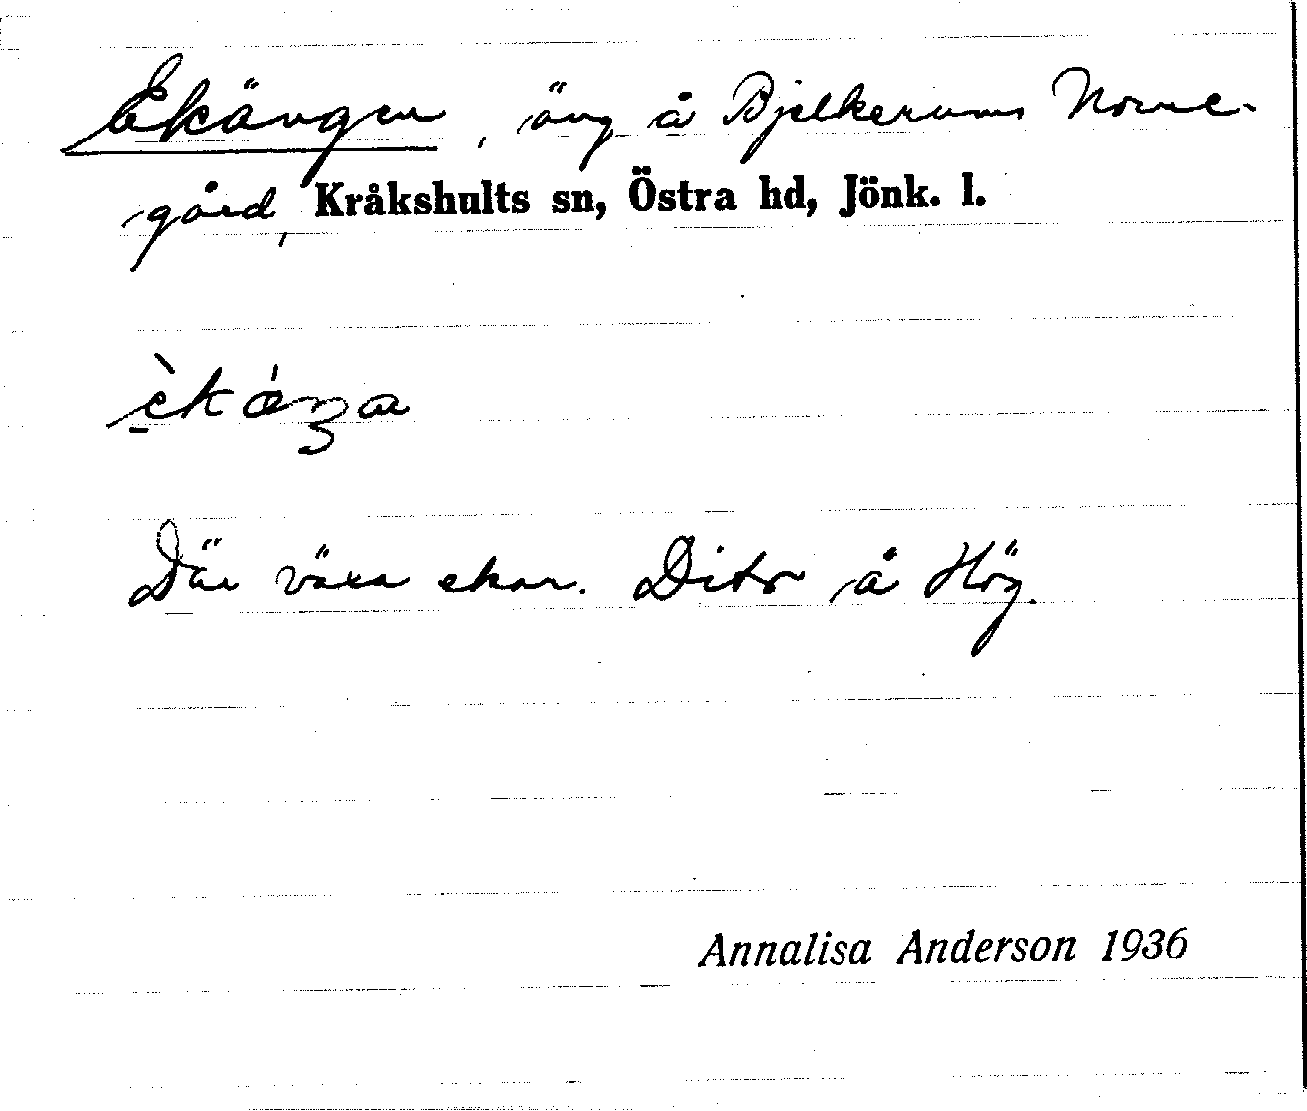 Ekängen, äng å Bjelkerums Norre-
gård, Kråkshults sn, Östra hd, Jönk. l.
èkáŋa
Där växa ekar. Dito å Hög.
Annalisa Anderson 1936